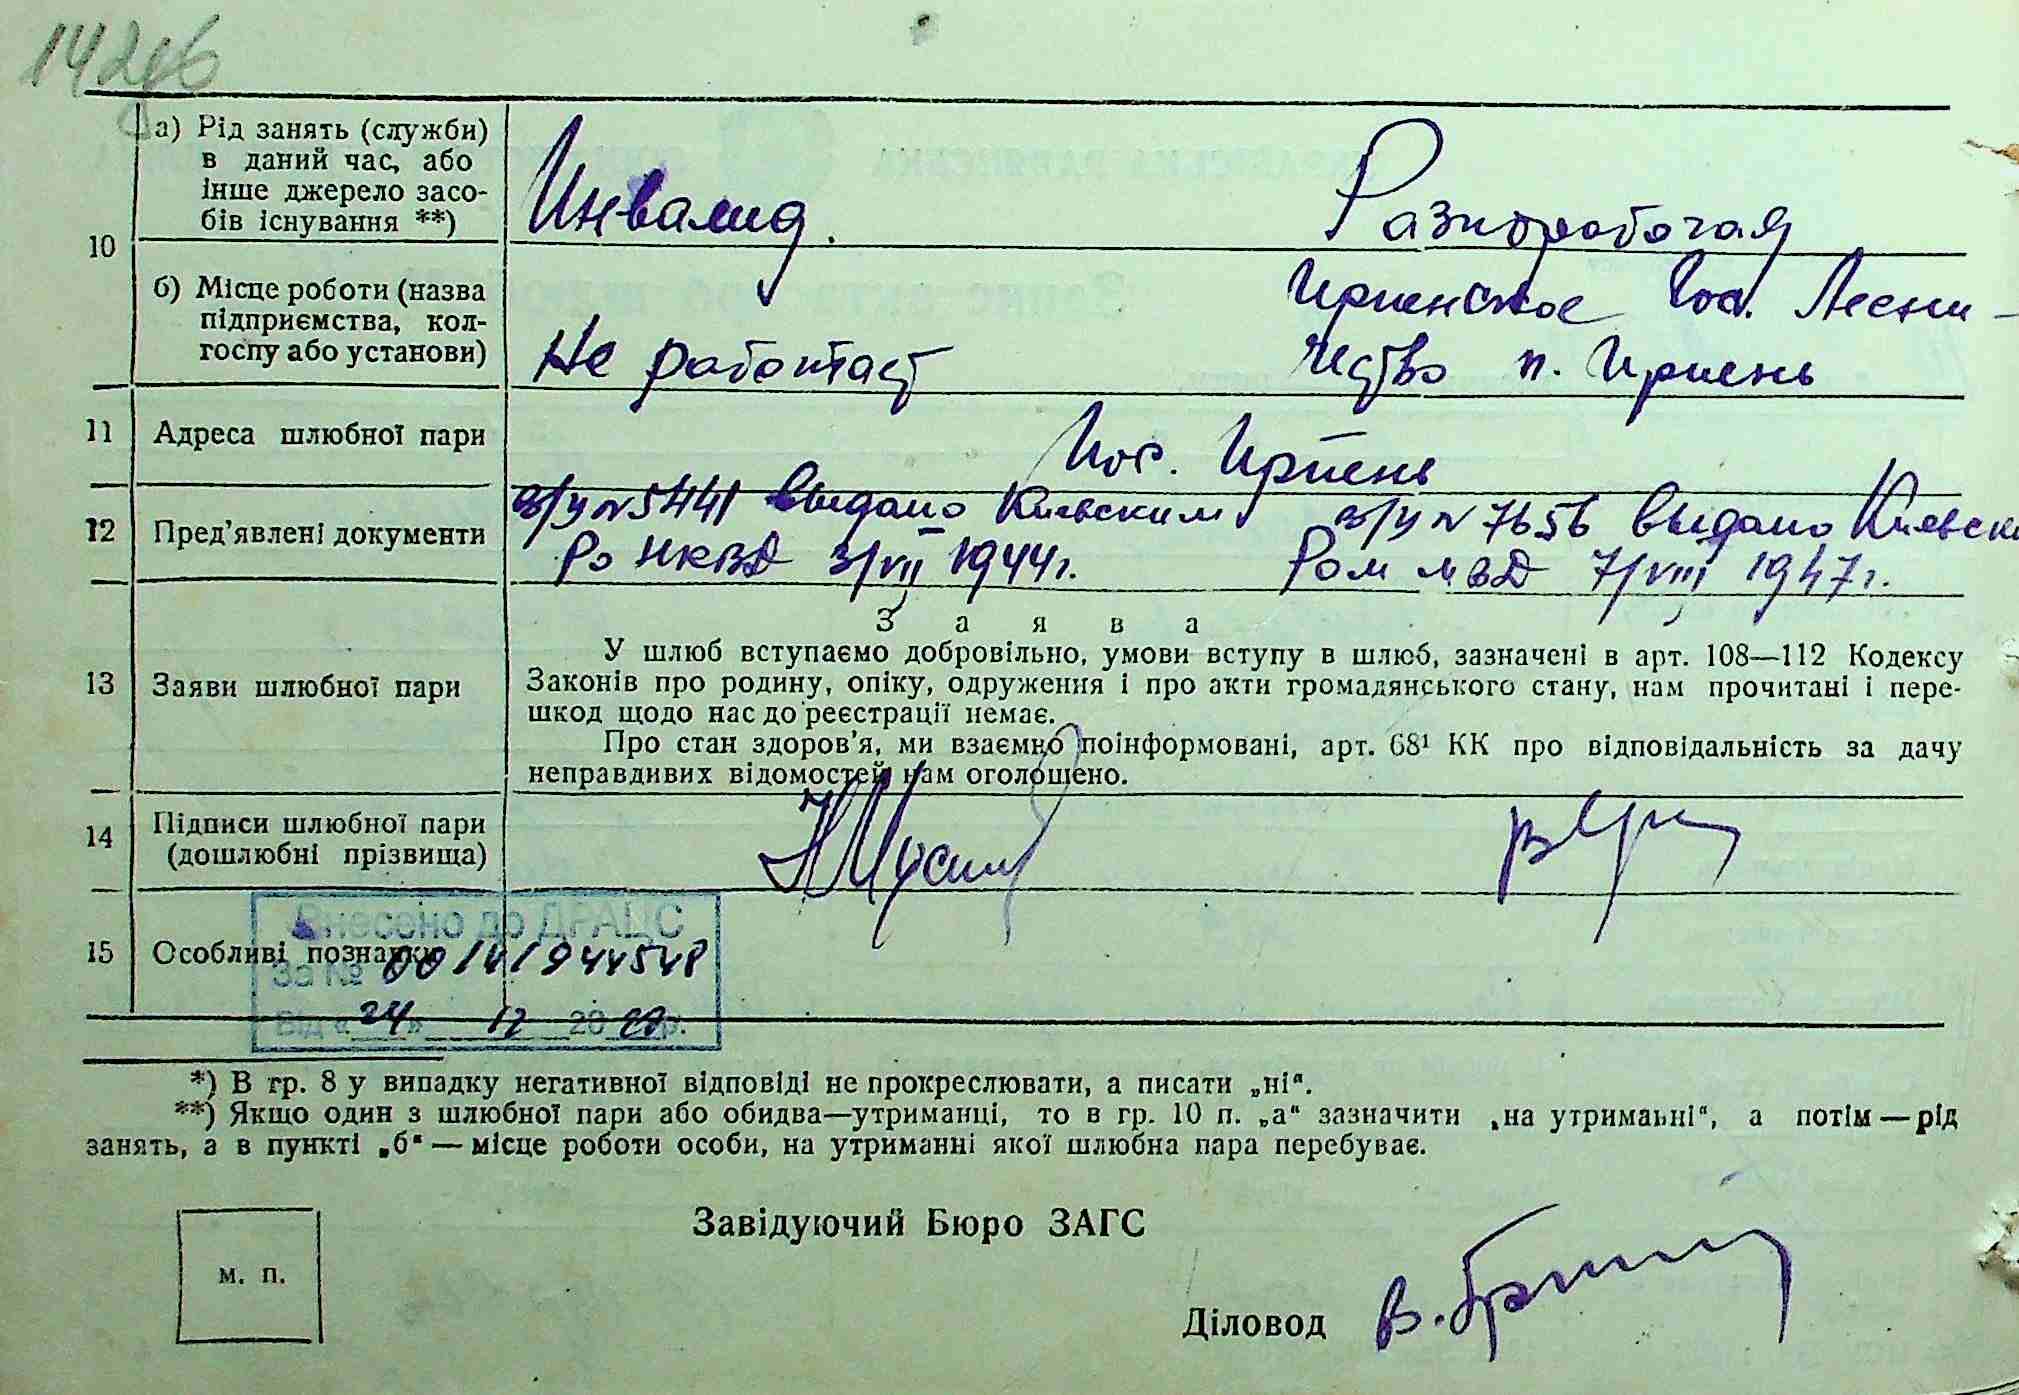 а) Рід занять (служби)
в даний час, або
інше джерело засо-
бів існування **)
Инвалид.
Разнорабочая
10
б) Місце роботи (назва
підприємства, кол-
госпу або установи)
Не работает
Ирпенское Гос. Лесни-
чество п. Ирпень
11 Адреса шлюбної пари
Пос. Ирпень
12 Пред'явлені документи
в/у № 5441 выдано Киевским
Ро НКВД 3/VII 1944 г.
в/у № 7656 выдано Киевски
Ром МВД 7/VIII 1947 г.
13 Заяви шлюбної пари
Заява
У шлюб вступаємо добровільно, умови вступу в шлюб, зазначені в арт. 108—112 Кодексу
Законів про родину, опіку, одруження і про акти громадянського стану, нам прочитані і пере-
шкод щодо нас до реєстрації немає.
Про стан здоров'я, ми взаємно поінформовані, арт. 68¹ КК про відповідальність за дачу
неправдивих відомостей нам оголошено.
14 Підписи шлюбної пари
(дошлюбні прізвища)
15 Особливі познаки
Внесено до ДРАЦС
За №
Від « 24 » 12 20 р.
*) В гр. 8 у випадку негативної відповіді не прокреслювати, а писати „ні“.
**) Якщо один з шлюбної пари або обидва—утриманці, то в гр. 10 п. „а“ зазначити „на утриманні“, а потім — рід
занять, а в пункті „б“ — місце роботи особи, на утриманні якої шлюбна пара перебуває.
Завідуючий Бюро ЗАГС
м. п.
Діловод